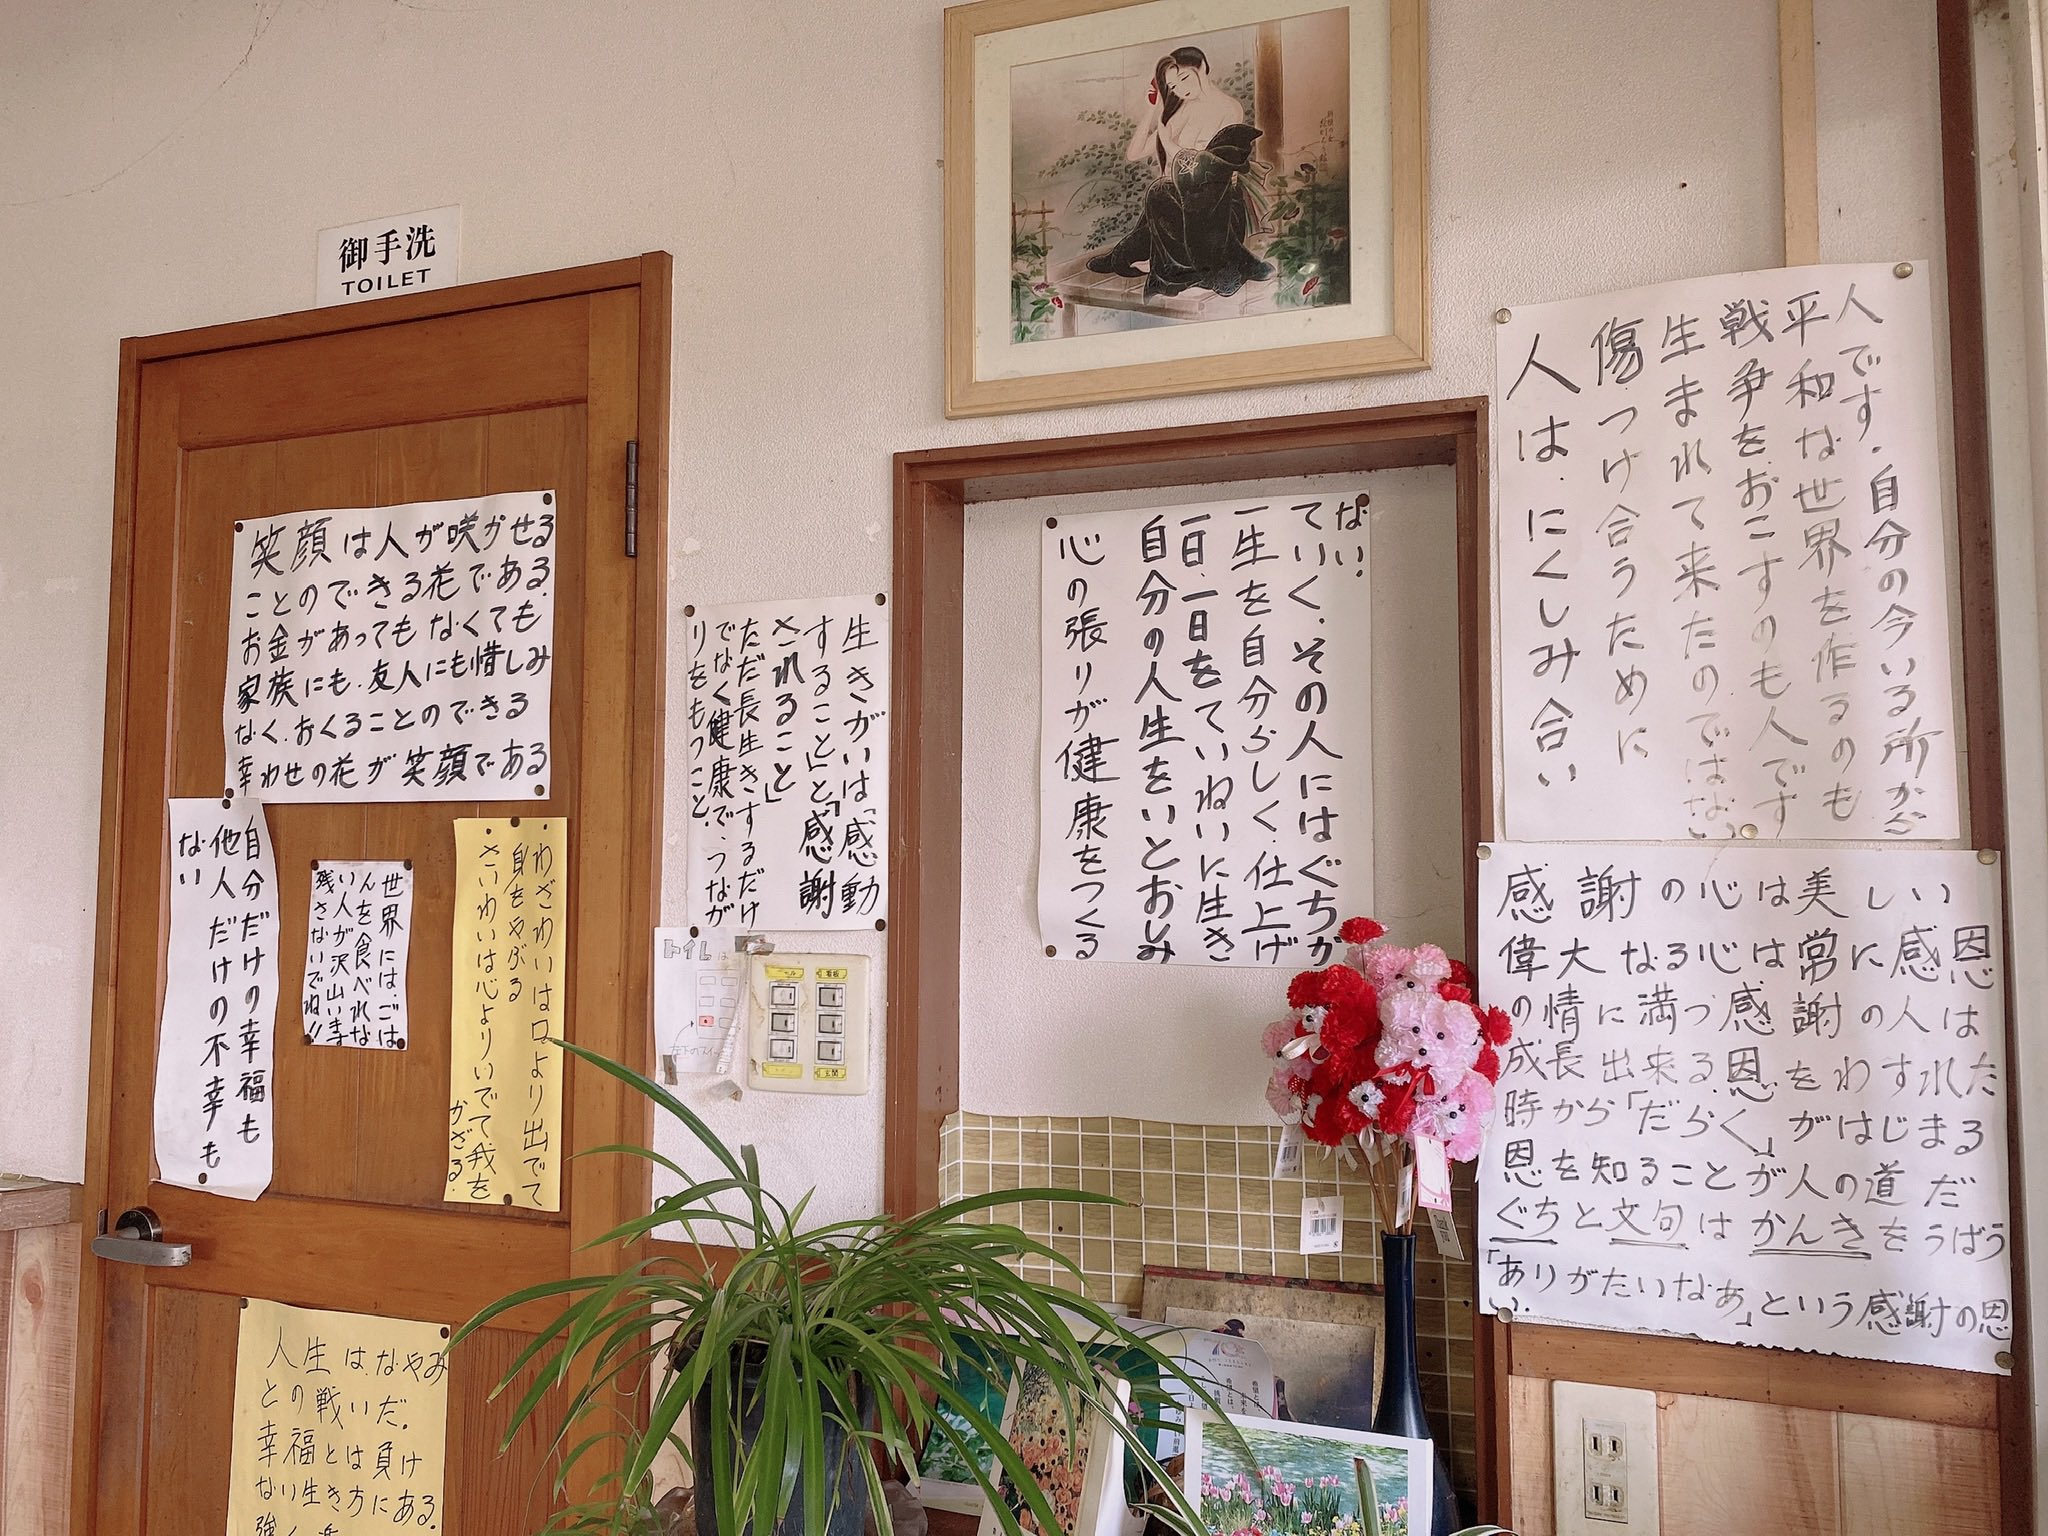 御手洗
TOILET
笑顔は人が咲かせる
ことのできる花である.
お金があっても.なくても.
家族にも.友人にも惜しみ
なく.おくることのできる
幸わせの花が笑顔である
自分だけの幸福も
他人だけの不幸も
ない
世界には.ごは
んを食べれな
い人が沢山います
残さないでね!!
・わざわいは口より出でて
身をやぶる
・さいわいは心よりいでて我を
かざる.
人生は.なやみ
との戦いだ。
幸福とは負け
ない生き方にある.
強く
生きがいは「感動
すること」と「感謝
されること」
ただ長生きするだけ
でなく健康で.つなが
りをもつこと.
トイレは
左下のスイッ
看板
玄関
心の張りが健康をつくる
自分の人生をいとおしみ
一日.一日をていねいに生き
一生を自分らしく.仕上げ
ていく.その人にはぐちが
ない.
人は.にくしみ合い
傷つけ合うために
生まれて来たのではない
戦争をおこすのも人です
平和な世界を作るのも
人です.自分の今いる所から
感謝の心は美しい
偉大なる心は常に感恩
の情に満つ感謝の人は
成長出来る.恩をわすれた
時から「だらく」がはじまる
恩を知ることが人の道だ
ぐちと文句はかんきをうばう
「ありがたいなあ」という感謝の恩
い.